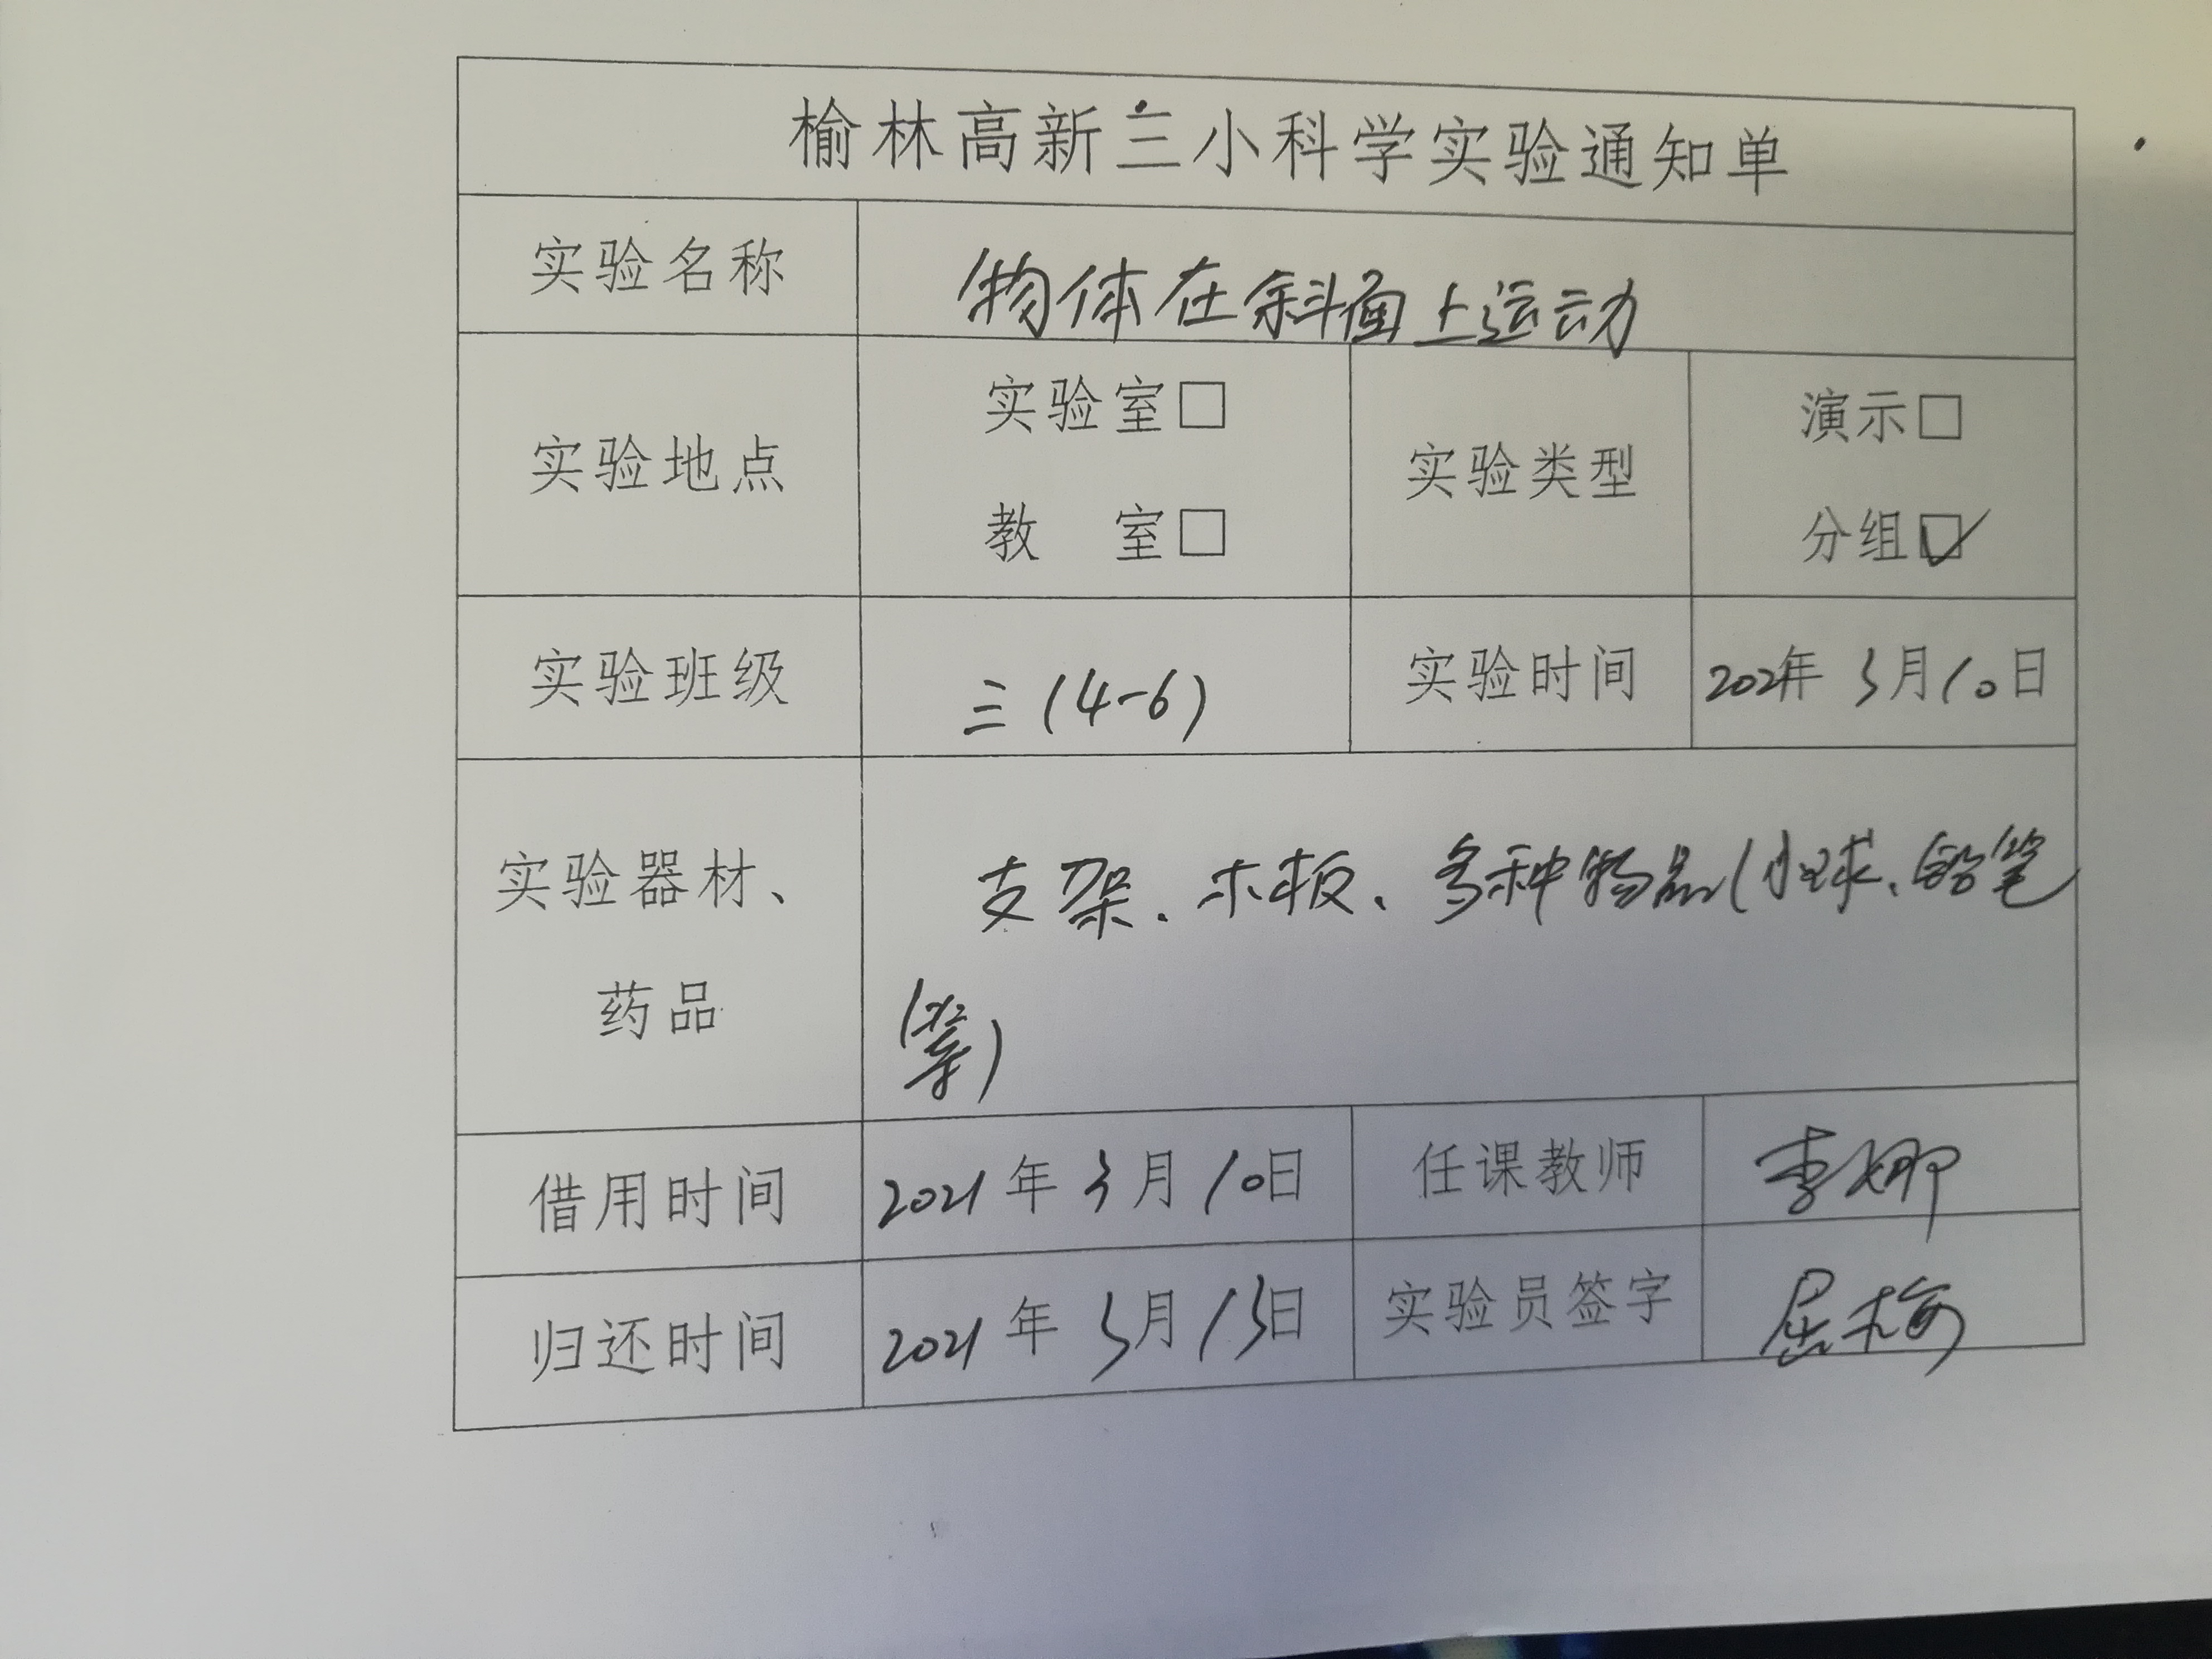 榆林高新三小科学实验通知单
实验名称 物体在斜面上运动
实验地点 实验室□ 教 室□ 实验类型 演示□ 分组☑
实验班级 三(4-6) 实验时间 2021年 3月10日
实验器材、药品 支架、木板、多种物品(小球、铅笔
等)
借用时间 2021年3月10日 任课教师 李娜
归还时间 2021年3月13日 实验员签字 屈梅